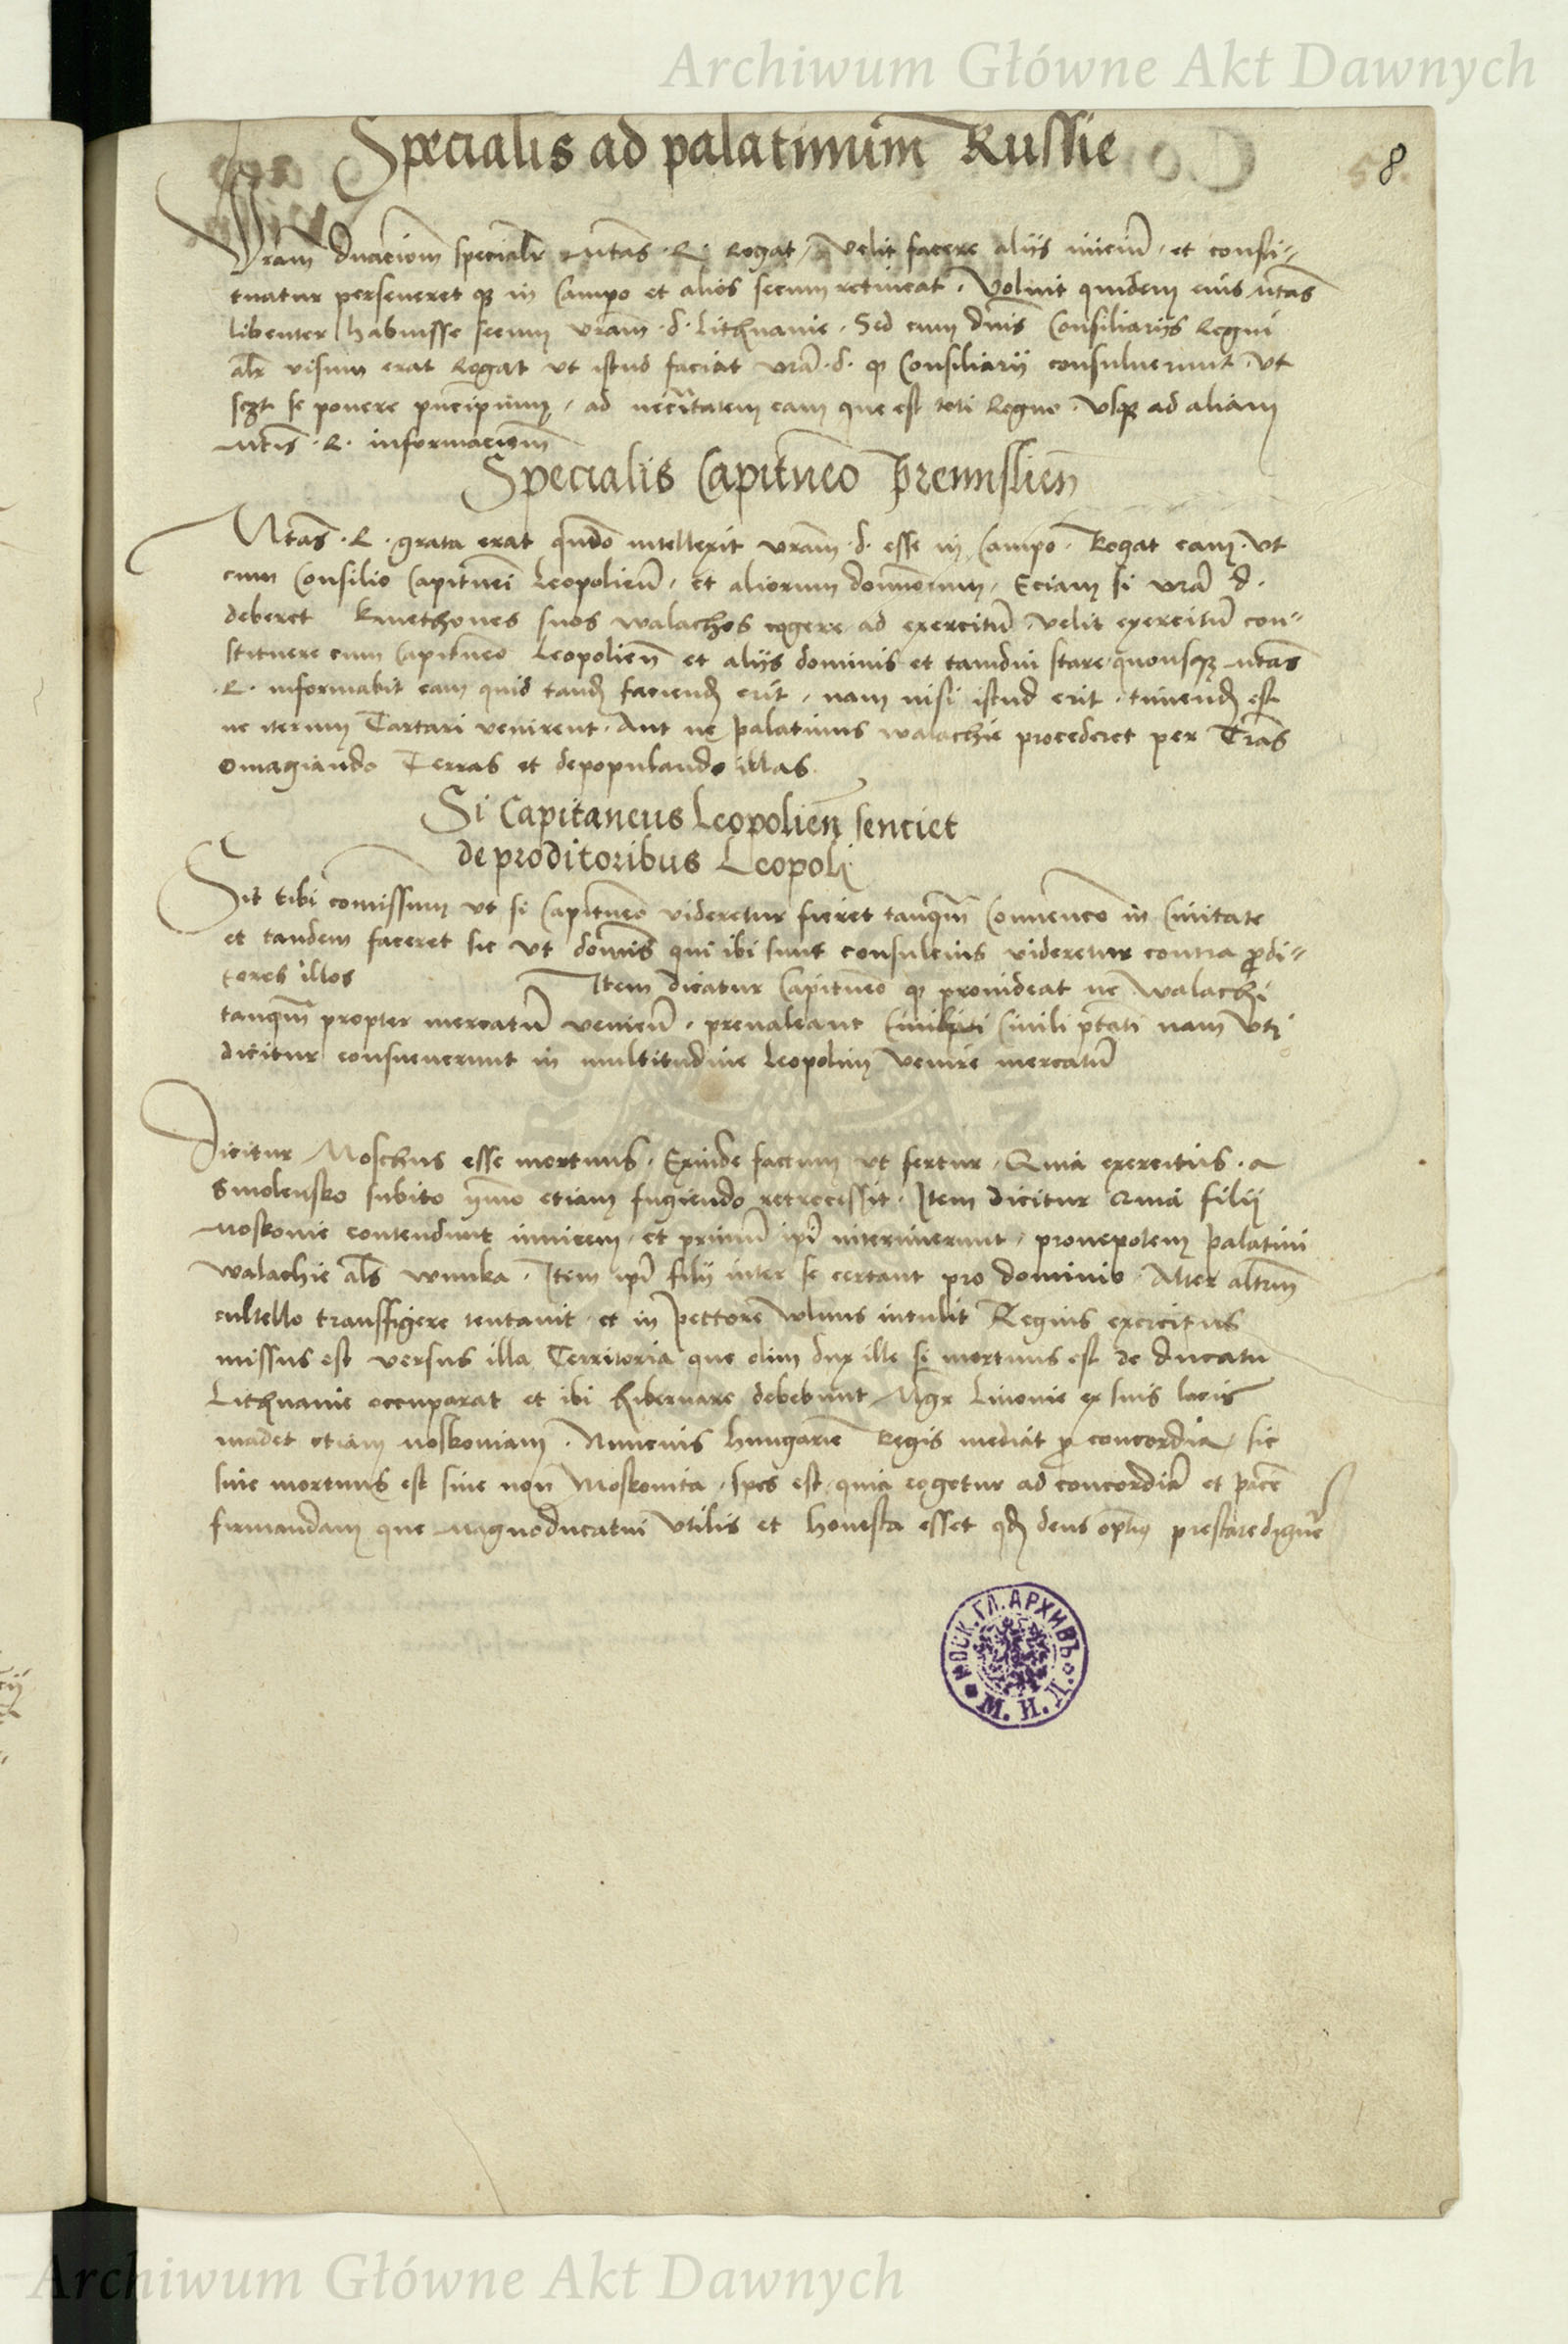 Archiwum Główne Akt Dawnych
Specialis ad palatinum Russie
8
Vram dnaciom specialr Mtas . R. Rogat, velit facere aliis iniciu . et consti-
tuatur perseveret q3 in Campo et alios secum retineat . Voluit quidem eius Mtas
libenter habuisse secum vram . d . Lithuanie . Sed cum dnis Consiliariis Regni
alr visum erat Rogat ut istud faciat vra . d . q Consiliarii consuluerunt . Ut
sczt se ponere , ad necritatem eam que est toti Regno . Usq3 ad aliam
Mtis . R . informaciom
Specialis Capitneo Premislien
Mtas . R . grata erat qndo intellexit vram . d . esse in Campo . Rogat eam . ut
cum Consilio Capitnei Leopolien . et aliorum dominorum . Eciam si vra d .
deberet Kmethones suos walachos cogere ad exercitu . velit exercitu con-
stituere cum Capitneo Leopolien et aliis dominis et tamdiu stare quousq3 Mtas
. R . informabit eam quid tand faciend erit . nam nisi istud erit . timend est
ne iterum Tartari venirent . Aut ne palatinus walachie procederet per Tras
omagiando Terras et depopulando illas .
Si Capitaneus Leopolien senciet
de proditoribus Leopoli
Sit tibi comissum ut si Capitneo videretur fieret tanqm Convenco in Civitate
et tandem faceret sic ut domis qui ibi sunt consulens videretur contra prodi-
tores illos Item dicatur Capitneo q3 provideat ne walachi
tanqm propter mercatu venien . prevaleant Civili ptati nam uti
dicitur consueverunt in multitudine Leopolim venire mercatu
Dicitur Moschus esse mortuus . Exinde factum ut fertur . Quia exercitus . a
Smolensko subito ymo etiam fugiendo retrocessit . Item dicitur Quia filii
Moskovie contendunt invicem . et primu ipi interimerunt . pronepotem palatini
walachie als wnuka . Item ipi filii inter se certant pro dominio . Alter altrum
cultello transfigere tentavit . et in pectore vlnus intulit Regius exercitus
missus est versus illa Territoria que olim dux ille si mortuus est de ducatu
Lithuanie occuparat et ibi hibernare debebunt . Mgr Livonie ex suis locis
vadet etiam Moskoviam . Nuncius hungarie Regis mediat p concordia . sic
sive mortuus est sive non Moskovita . spes est quia cogetur ad concordia et pace
firmandam que Magnoducatui Utilis et honesta esset qd deus optimus prestare dignetur
МОСК. ГЛ. АРХИВЪ
М. И. Д.
Archiwum Główne Akt Dawnych